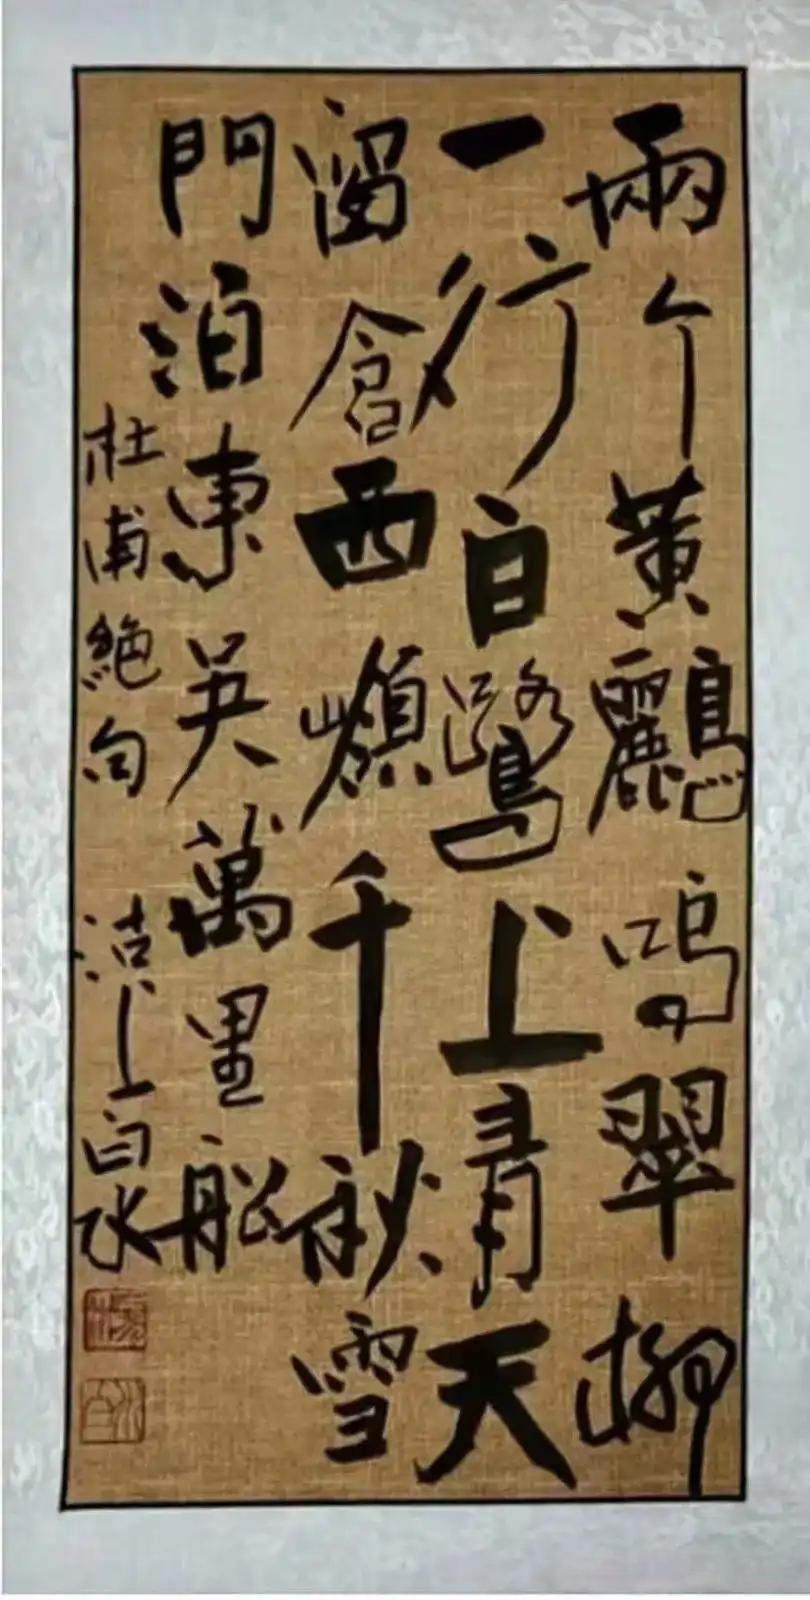 兩个黃鸝鳴翠柳
一行白鷺上青天
窗含西嶺千秋雪
門泊東吳萬里船
杜甫絕句 上白水